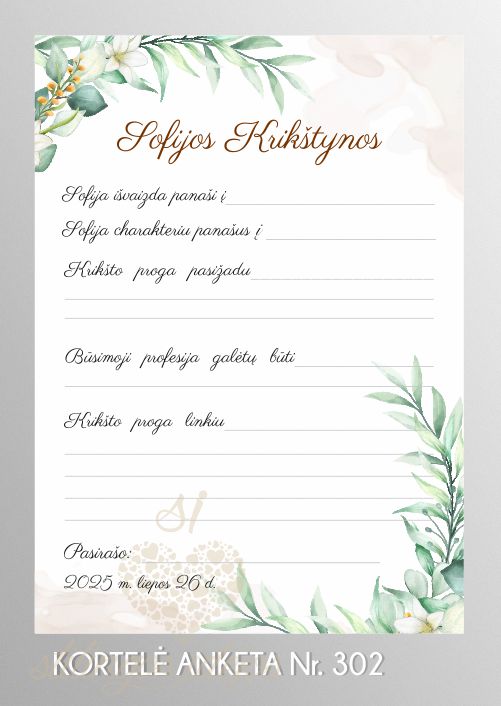 Sofijos Krikštynos
Sofija išvaizda panaši į
Sofija charakteriu panašus į
Krikšto proga pasižadu
Būsimoji profesija galėtų būti
Krikšto proga linkiu
si
Pasirašo:
2025 m. liepos 26 d.
KORTELĖ ANKETA Nr. 302